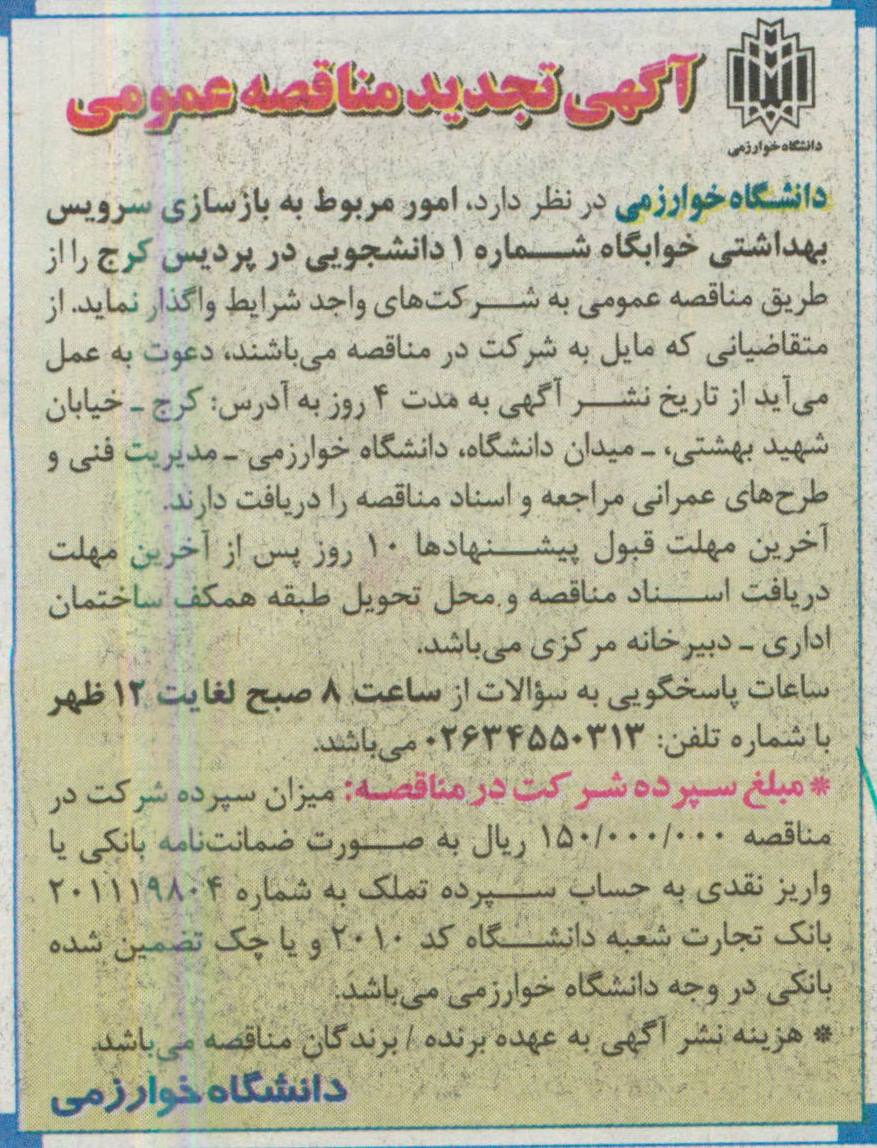 آگهی تجدید مناقصه عمومی
دانشگاه خوارزمی
دانشگاه خوارزمی در نظر دارد، امور مربوط به بازسازی سرویس
بهداشتی خوابگاه شماره ۱ دانشجویی در پردیس کرج را از
طریق مناقصه عمومی به شرکت‌های واجد شرایط واگذار نماید. از
متقاضیانی که مایل به شرکت در مناقصه می‌باشند، دعوت به عمل
می‌آید از تاریخ نشر آگهی به مدت ۴ روز به آدرس: کرج ـ خیابان
شهید بهشتی، ـ میدان دانشگاه، دانشگاه خوارزمی ـ مدیریت فنی و
طرح‌های عمرانی مراجعه و اسناد مناقصه را دریافت دارند.
آخرین مهلت قبول پیشنهادها ۱۰ روز پس از آخرین مهلت
دریافت اسناد مناقصه و محل تحویل طبقه همکف ساختمان
اداری ـ دبیرخانه مرکزی می‌باشد.
ساعات پاسخگویی به سؤالات از ساعت ۸ صبح لغایت ۱۲ ظهر
با شماره تلفن: ۰۲۶۳۴۵۵۰۳۱۳ می‌باشد.
* مبلغ سپرده شرکت در مناقصه: میزان سپرده شرکت در
مناقصه ۱۵۰/۰۰۰/۰۰۰ ریال به صورت ضمانت‌نامه بانکی یا
واریز نقدی به حساب سپرده تملک به شماره ۲۰۱۱۱۹۸۰۴
بانک تجارت شعبه دانشگاه کد ۲۰۱۰ و یا چک تضمین شده
بانکی در وجه دانشگاه خوارزمی می‌باشد.
* هزینه نشر آگهی به عهده برنده / برندگان مناقصه می‌باشد.
دانشگاه خوارزمی